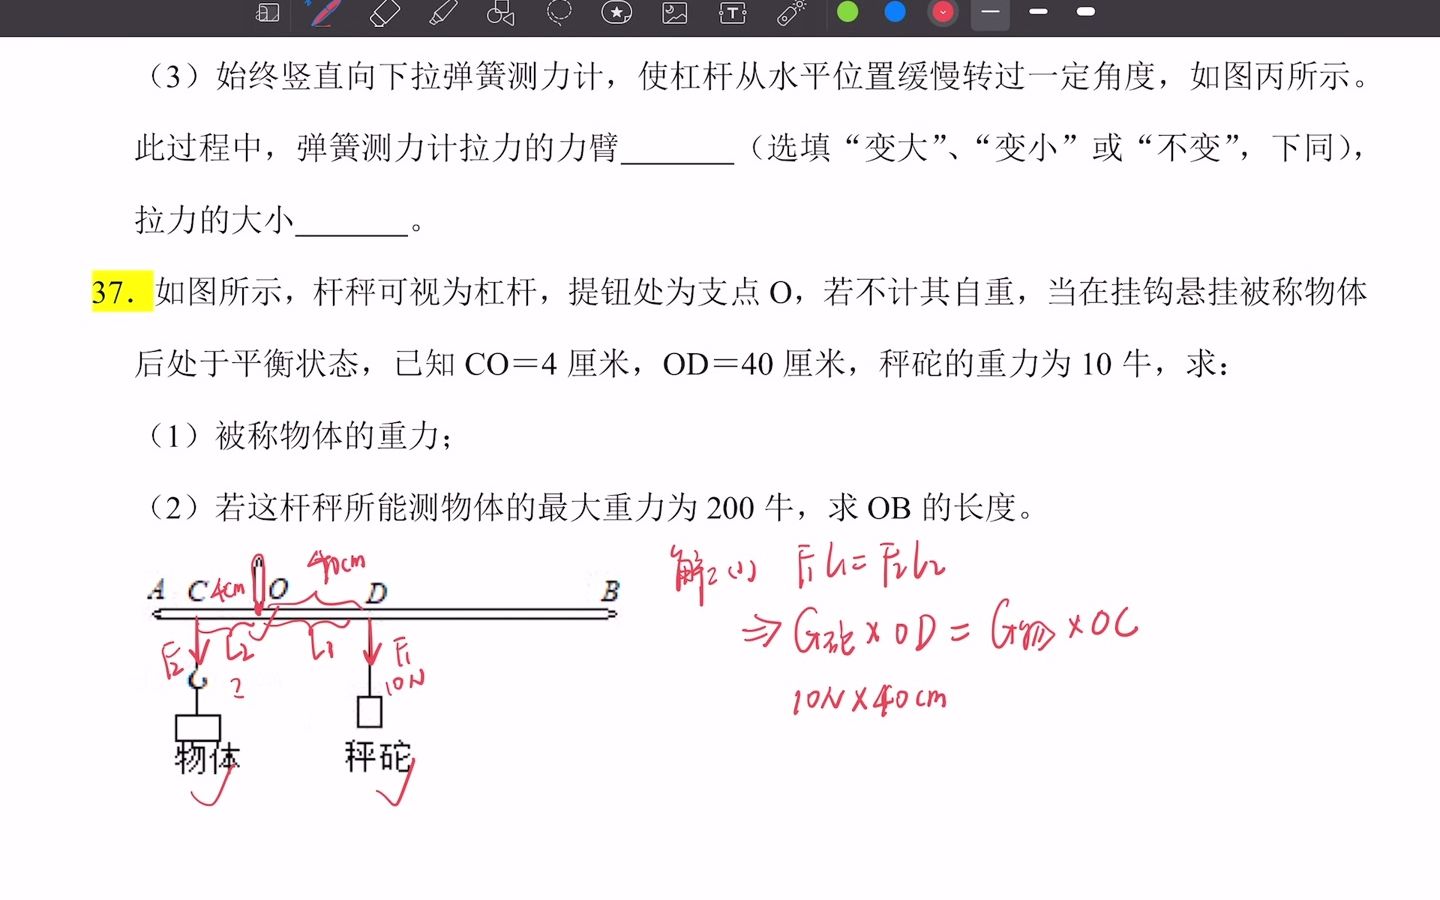 （3）始终竖直向下拉弹簧测力计，使杠杆从水平位置缓慢转过一定角度，如图丙所示。
此过程中，弹簧测力计拉力的力臂_______（选填“变大”、“变小”或“不变”，下同），
拉力的大小_______。
37．如图所示，杆秤可视为杠杆，提钮处为支点 O，若不计其自重，当在挂钩悬挂被称物体
后处于平衡状态，已知 CO＝4 厘米，OD＝40 厘米，秤砣的重力为 10 牛，求：
（1）被称物体的重力；
（2）若这杆秤所能测物体的最大重力为 200 牛，求 OB 的长度。
解：(1) F₁L₁=F₂L₂
40cm
A C 4cm O D B
⇒ G砣×OD=G物×OC
F₂ L₂ L₁ F₁
? 10N
10N×40cm
物体 秤砣